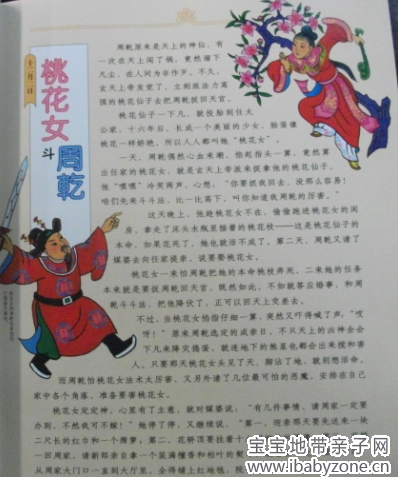 十一月一日
桃花女
斗
周乾
周乾原来是天上的神仙，有
一次在天上闯了祸，竟然溜下
凡尘，在人间为非作歹。不久，
玄天上帝发觉了，立刻派法力高
强的桃花仙子去把周乾捉回天宫。
桃花仙子一下凡，就投胎到任大
公家，十六年后，长成一个美丽的少女，脸蛋像
桃花一样娇艳，所以人人都叫他“桃花女”。
一天，周乾偶然心血来潮，恰起指头一算，竟然算
出任家的桃花女，就是玄天上帝派来捉拿他的桃花仙子，
他“嘿嘿”冷笑两声，心想：“你要抓我回去，没那么容易！
咱们先来斗斗法，比一比高下，叫你知道我周乾的厉害。”
这天晚上，他趁桃花女不在，偷偷跑进桃花女的闺
房，拿走了床头水瓶里插着的桃花枝——这是桃花仙子的
本命，如果花死了，她也就活不成了。第二天，周乾又请了
媒婆去向任家提亲，说要娶桃花女。
桃花女一来怕周乾把她的本命桃枝弄死，二来她的任务
本来就是要捉周乾回天宫，既然如此，不如就答应婚事，和周
乾斗斗法，把他降伏了，正可以回天上交差去。
不过，当桃花女掐指仔细一算，突然又吓得喊了声：“哎
呀！”原来周乾选定的成亲日，不只天上的凶神会会
下凡来降灾捣蛋，就连地下的熊星也都会出来搅和害
人。只要那天桃花女头见了天、脚沾了地，就别想活命。
而周乾怕桃花女法术太厉害，又另外请了几位最可怕的恶魔，安排在自己
家中各个角落，准备要害桃花女。
桃花女定定神，心里有了主意，就对媒婆说：“有几件事情，请周家一定要
办到，不然我可不嫁！”她停了停，又继续说：“第一，迎亲那天要先送来一块
二尺长的红巾和一个筛萝。第二，花轿顶要挂着十
一回周家，请新郎亲自拿一个装满檀香和柏叶的熨
从周家大门口一直到大厅里，全得铺上红地毯，按
宝宝地带亲子网
www.ibabyzone.cn